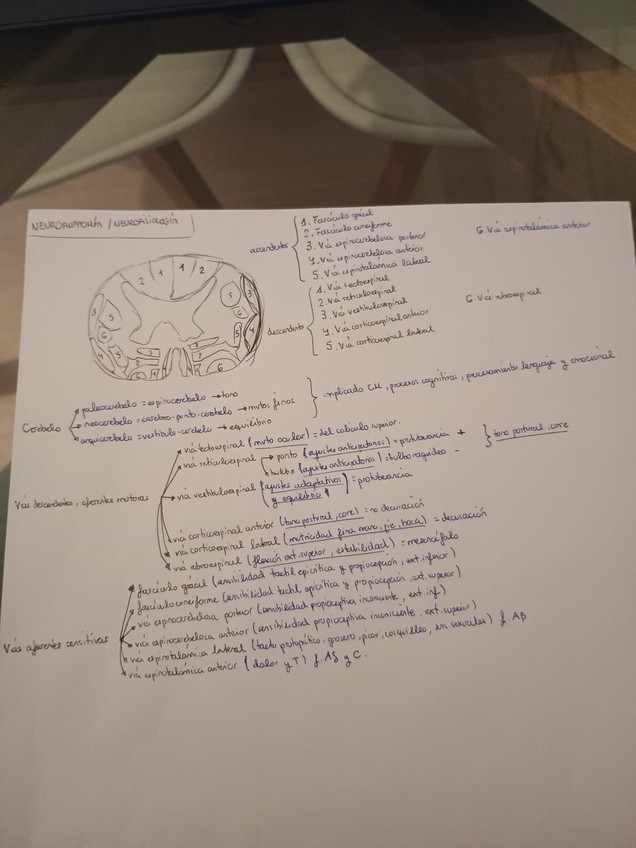 NEUROANATOMÍA / NEUROFISIOLOGÍA
ascendentes
1. Fascículo grácil
2. Fascículo cuneiforme
3. Vía espinocerebelosa posterior
4. Vía espinocerebelosa anterior
5. Vía espinotalámica lateral
6. Vía espinotalámica anterior
descendentes
1. Vía tectoespinal
2. Vía reticuloespinal
3. Vía vestibuloespinal
4. Vía corticoespinal anterior
5. Vía corticoespinal lateral
6. Vía rubroespinal
2 1 1 2
3 5 6 4
5 3 6 5 4
Cerebelo
paleocerebelo = espinocerebelo → tono
neocerebelo = cerebro-ponto-cerebelo → mvtos finos
arquicerebelo = vestíbulo-cerebelo → equilibrio
implicado CM, procesos cognitivos, procesamiento lenguaje y emocional
Vías descendentes, eferentes motoras
vía tectoespinal (mvto ocular) = del colículo superior.
vía reticuloespinal → ponto (ajustes anticipatorios) = protuberancia +
bulbo (ajustes anticipatorios) = bulbo raquídeo -
tono postural, core
vía vestibuloespinal (ajustes adaptativos y equilibrio) = protuberancia
vía corticoespinal anterior (tono postural, core) = no decusación
vía corticoespinal lateral (motricidad fina mano, pie, boca) = decusación
vía rubroespinal (flexión ext. superior, estabilidad) = mesencéfalo
Vías aferentes sensitivas
fascículo grácil (sensibilidad táctil epicrítica y propiocepción, ext. inferior)
fascículo cuneiforme (sensibilidad táctil epicrítica y propiocepción, ext. superior)
vía espinocerebelosa posterior (sensibilidad propioceptiva inconsciente, ext. inf)
vía espinocerebelosa anterior (sensibilidad propioceptiva inconsciente, ext. superior)
vía espinotalámica lateral (tacto protopático: grosero, picor, cosquilleo, sexuales) f. Aβ
vía espinotalámica anterior (dolor y T) f. Aδ y C.